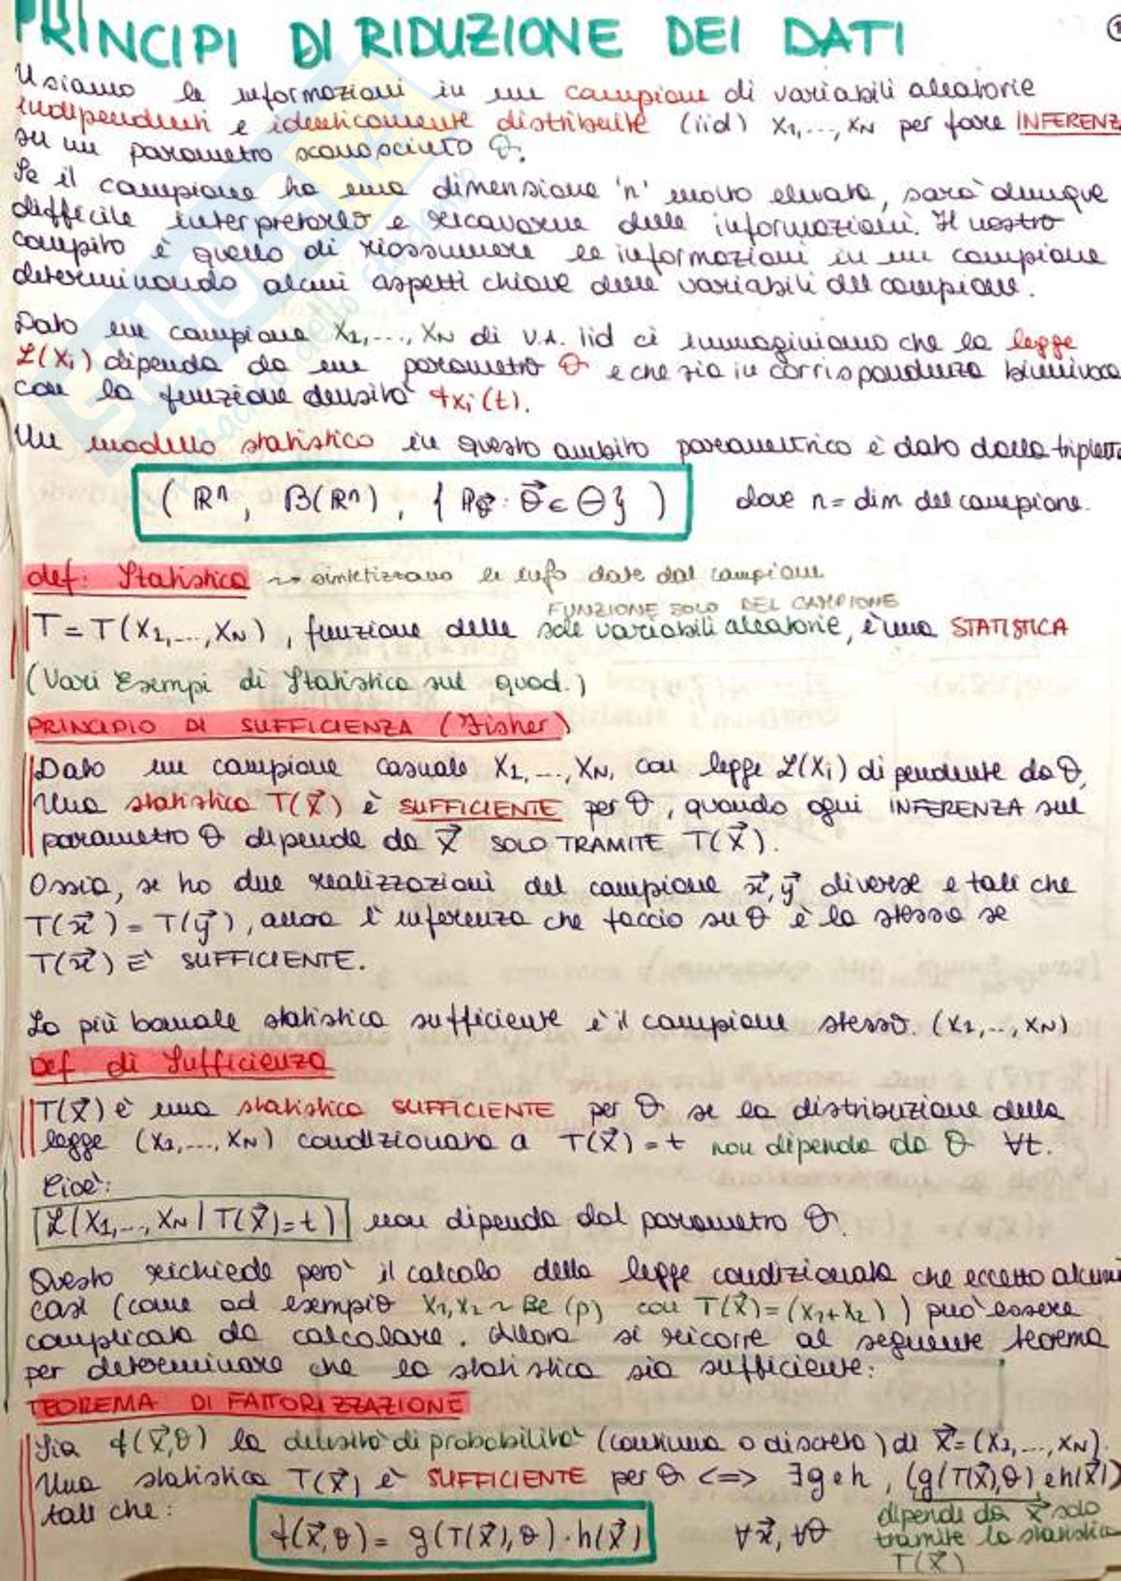 PRINCIPI DI RIDUZIONE DEI DATI
1
Usiamo le informazioni in un campione di variabili aleatorie
indipendenti e identicamente distribuite (iid) X1,..., XN per fare INFERENZ
su un parametro sconosciuto θ.
Se il campione ha una dimensione 'n' molto elevata, sarà dunque
difficile interpretarlo e ricavarne delle informazioni. Il nostro
compito è quello di riassumere le informazioni in un campione
determinando alcuni aspetti chiave delle variabili del campione.
Dato un campione X1,..., XN di v.a. iid ci immaginiamo che la legge
L(Xi) dipenda da un parametro θ e che sia in corrispondenza biunivoca
con la funzione densità fxi(t).
Un modello statistico in questo ambito parametrico è dato dalla tripletta
(ℝⁿ, B(ℝⁿ), {Pθ⃗ : θ⃗ ∈ Θ}) dove n = dim del campione.
def: Statistica ~> sintetizzano le info date dal campione
FUNZIONE SOLO DEL CAMPIONE
T = T(X1,...,XN), funzione delle sole variabili aleatorie, è una STATISTICA
(Vari Esempi di Statistica sul quad.)
PRINCIPIO DI SUFFICIENZA (Fisher)
Dato un campione casuale X1,..., XN, con legge L(Xi) dipendente da θ,
Una statistica T(X⃗) è SUFFICIENTE per θ, quando ogni INFERENZA sul
parametro θ dipende da X⃗ SOLO TRAMITE T(X⃗).
Ossia, se ho due realizzazioni del campione x⃗, y⃗ diverse e tali che
T(x⃗) = T(y⃗), allora l'inferenza che faccio su θ è la stessa se
T(x⃗) È SUFFICIENTE.
La più banale statistica sufficiente è il campione stesso. (X1,.., XN)
Def di Sufficienza
T(X⃗) è una statistica SUFFICIENTE per θ se la distribuzione della
legge (X1,..., XN) condizionata a T(X⃗) = t non dipende da θ ∀t.
Cioè:
L(X1,..., XN | T(X⃗)=t) non dipenda dal parametro θ.
Questo richiede però il calcolo della legge condizionata che eccetto alcuni
casi (come ad esempio X1,X2 ~ Be(p) con T(X⃗)=(X1+X2)) può essere
complicata da calcolare. Allora si ricorre al seguente teorema
per determinare che la statistica sia sufficiente:
TEOREMA DI FATTORIZZAZIONE
Sia f(X⃗,θ) la densità di probabilità (continua o discreta) di X⃗=(X1,..., XN).
Una statistica T(X⃗) è SUFFICIENTE per θ <=> ∃ g e h, (g(T(X⃗),θ) e h(X⃗))
tali che:
f(X⃗,θ) = g(T(X⃗),θ) · h(X⃗) ∀x⃗, ∀θ
dipende da X⃗ solo
tramite la statistica
T(X⃗)